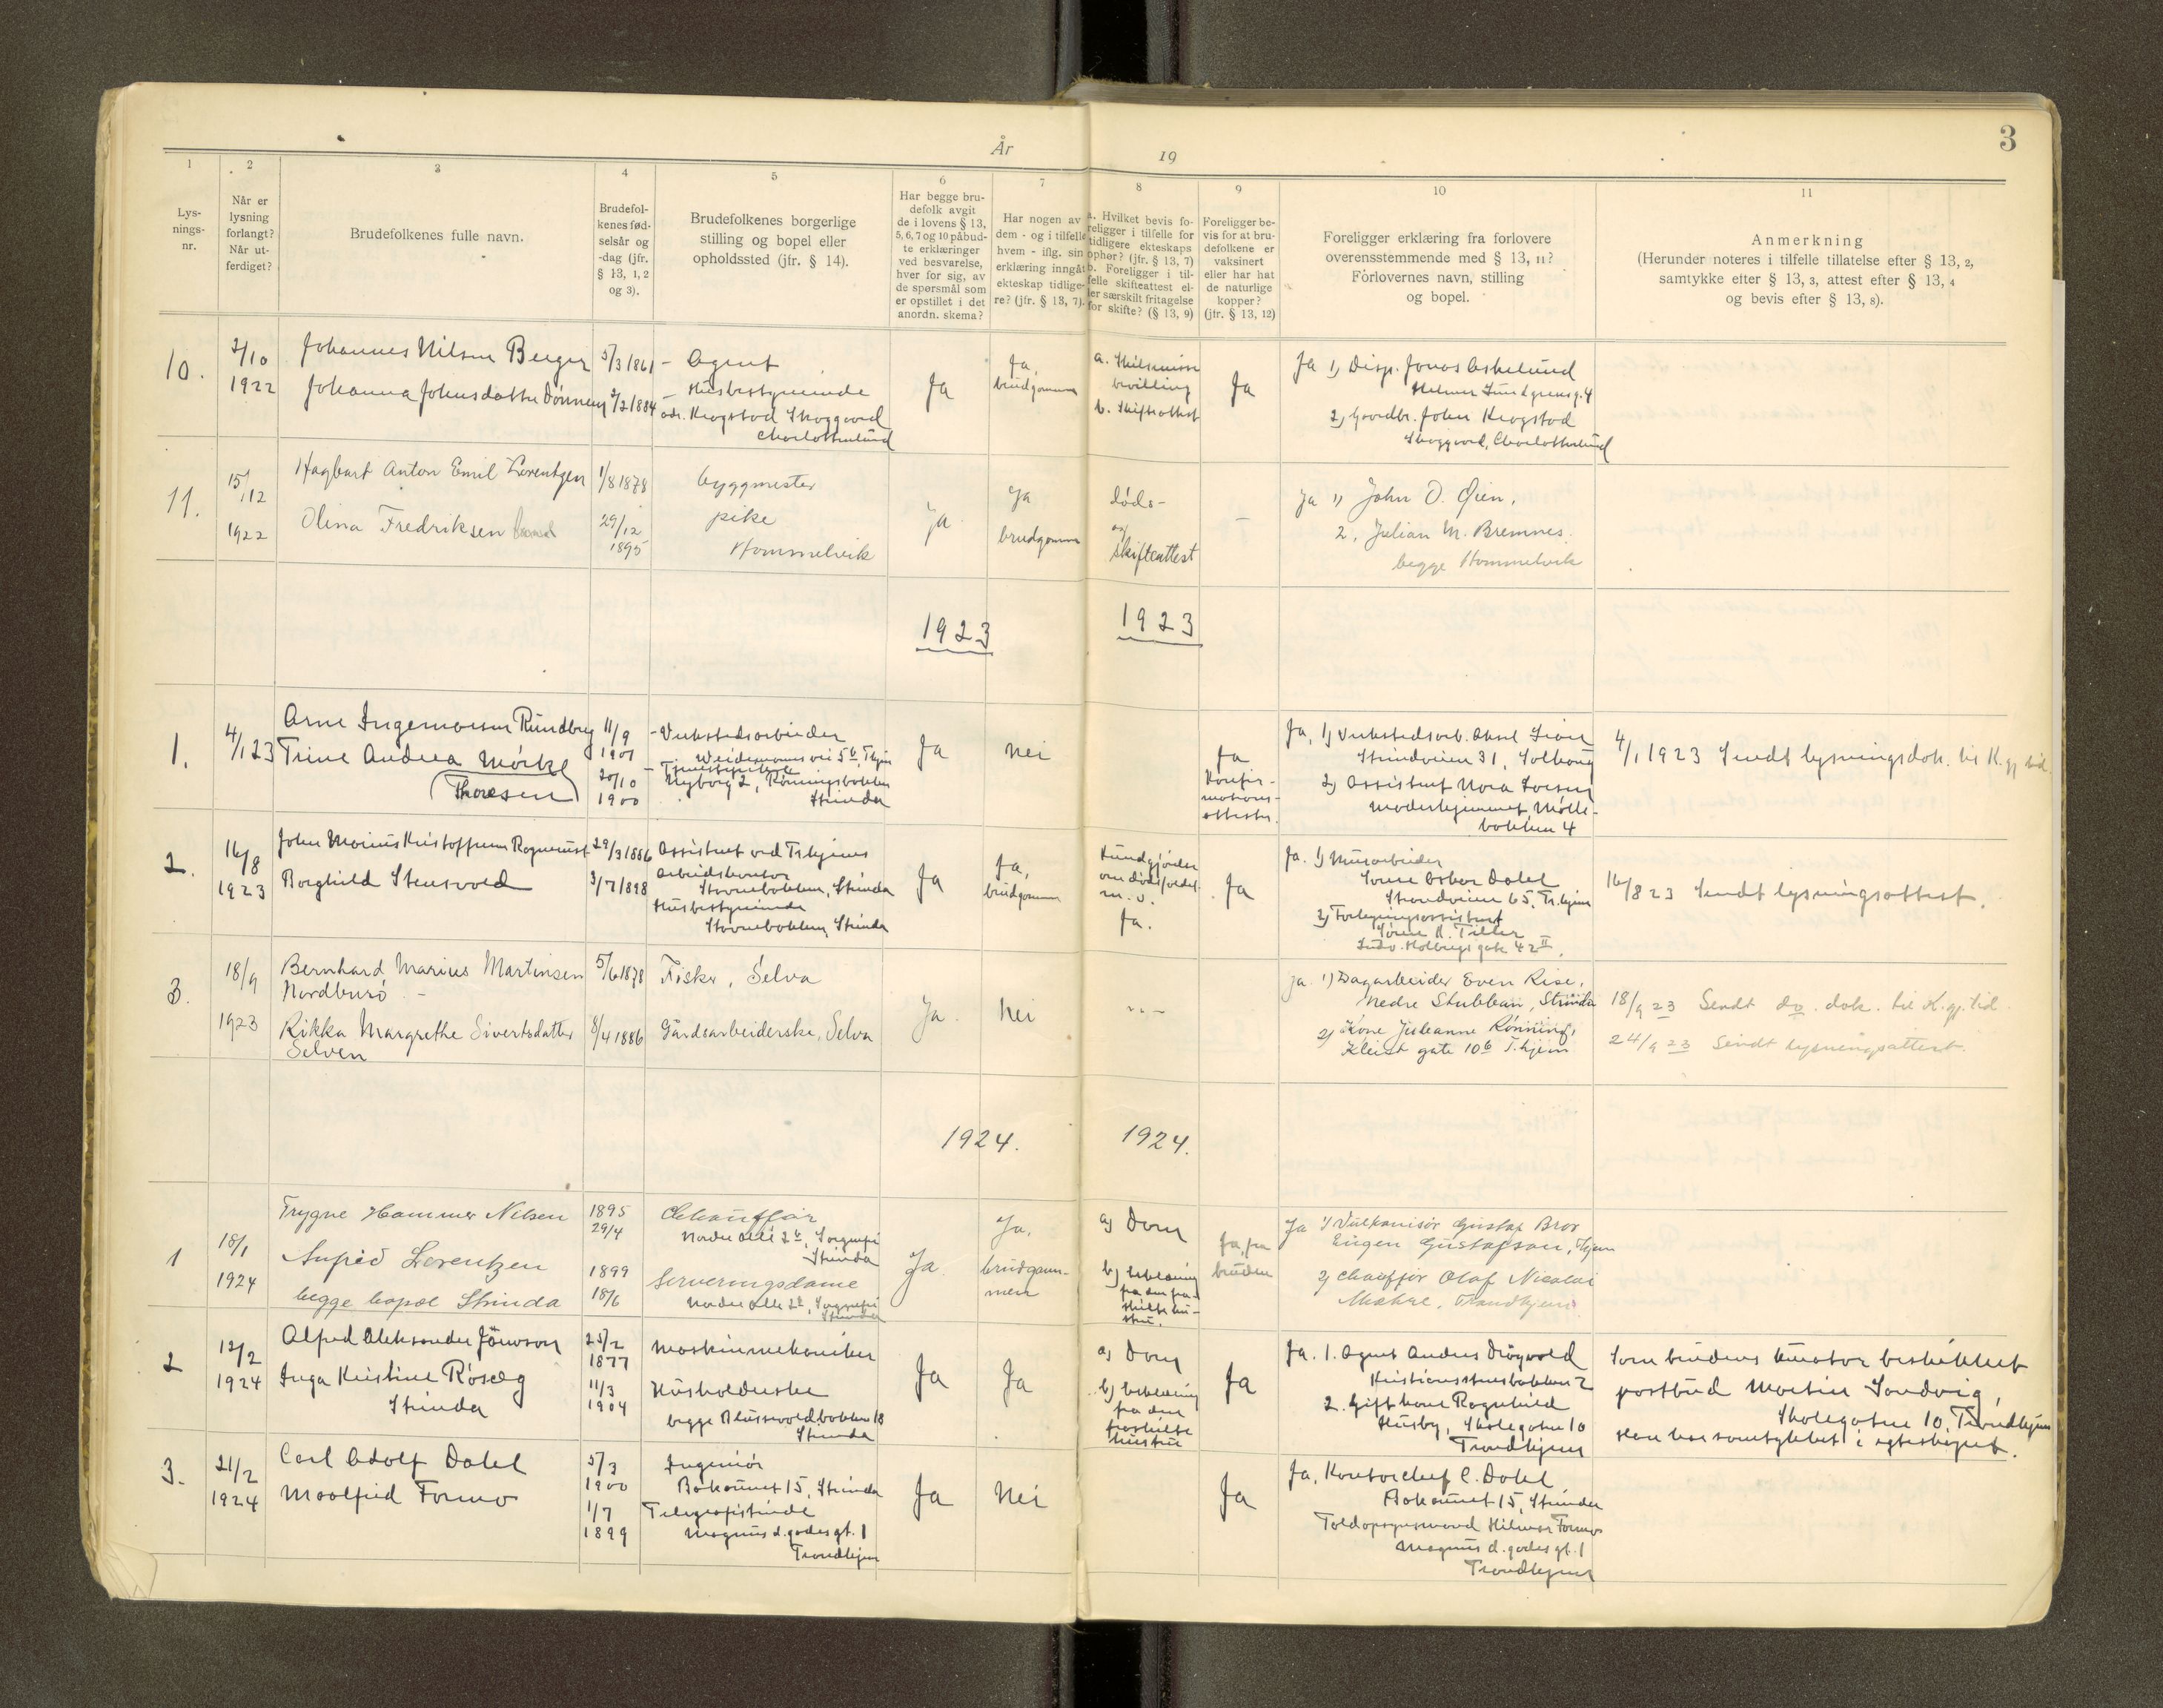 3
År 19
1
2
3
4
5
6
7
8
9
10
11
Lys-
nings-
nr.
Når er
lysning
forlangt?
Når ut-
ferdiget?
Brudefolkenes fulle navn.
Brudefol-
kenes fød-
selsår og
-dag (jfr.
§ 13, 1, 2
og 3).
Brudefolkenes borgerlige
stilling og bopel eller
opholdssted (jfr. § 14).
Har begge bru-
defolk avgit
de i lovens § 13,
5, 6, 7 og 10 påbud-
te erklæringer
ved besvarelse,
hver for sig, av
de spørsmål som
er opstillet i det
anordn. skema?
Har nogen av
dem - og i tilfelle
hvem - iflg. sin
erklæring inngåt
ekteskap tidlige-
re? (jfr. § 13, 7).
a. Hvilket bevis fo-
religger i tilfelle for
tidligere ekteskaps
opher? (jfr. § 13, 7)
b. Foreligger i til-
felle skifteattest el-
ler særskilt fritagelse
for skifte? (§ 13, 9)
Foreligger be-
vis for at bru-
defolkene er
vaksinert
eller har hat
de naturlige
kopper?
(jfr. § 13, 12)
Foreligger erklæring fra forlovere
overensstemmende med § 13, 11?
Forlovernes navn, stilling
og bopel.
Anmerkning
(Herunder noteres i tilfelle tillatelse efter § 13, 2,
samtykke efter § 13, 3, attest efter § 13, 4
og bevis efter § 13, 8).
10.
2/10
1922
Johannes Nilsen Berger
Johanna Johnsdatter Dønnem
5/3 1861
2/2 1884
- Agent
- Husbestyrerinde
adr. Krogstad Skoggaard
Charlottenlund
Ja
Ja,
brudgommen
a. Skilsmisse
bevilling
b. Skifteattest
Ja
Ja 1) Disp. Jonas Askelund
Helmer Lundgrensg. 4
2) Gaardbr. John Krogstad
Skoggaard, Charlottenlund
11.
15/12
1922
Hagbart Anton Emil Lorentzen
Olina Fredriksen
1/8 1878
29/12
1895
byggmester
pike
Hommelvik
Ja
Ja
brudgommen
døds-
og
skifteattest
-
Ja 1) John O. Øien,
2, Julian M. Bremnes.
begge Hommelvik
1923
1923
1.
4/1 23
Arne Ingemarsen Rundberg
Trine Andrea Mørkel
(Thoresen)
11/9
1901
20/10
1900
- Verkstedsarbeider
Weidemanns vei 5b, Thjem
Nyborg 2, Rønningsbakken
Strinda
Ja
Nei
Ja
Konfir-
mations-
attester.
Ja, 1) Verkstedsarb. Aksel
Strindveien 31,
2) Assistent Nora
Moderhjemmet, Mølle-
bakken 4
4/1 1923 Sendt lysningsdok. til K.gj. tid.
2.
16/8
1923
John Marius Kristoffersen
Borghild Stensvold
29/3 1886
3/7 1898
Assistent ved Tr.hjems
arbeidskontor
Stavnebakken, Strinda
Husbestyrerinde
Stavnebakken, Strinda
Ja
Ja,
brudgommen
Kundgjørelse
om dødsfaldet
m. v.
Ja.
Ja
Ja. 1) Murarbeider
Oskar Dahl
Strandveien 65, Tr.hjem
2)
Søren H. Tiller
Ludv. Holbergs gate 42 II.
16/8 23 Sendt lysningsattest.
3.
18/9
1923
Bernhard Marius Martinsen
Nordburø -
Rikka Margrethe Sivertsdatter
Selven
5/6 1878
8/4 1886
Fisker, Selva
Gårdsarbeiderske, Selva
Ja
Nei
Ja. 1) Dagarbeider Even Rise,
Nedre Stubban, Strinda
2) Kone Juleanne Rønning,
Kleist gate 10b T.hjem
18/9 23 Sendt do. dok. til K.gj. tid.
24/9 23 Sendt lysningsattest.
1924.
1924.
1
18/1
1924
Trygve Hammer Nilsen
Anfrid Lorentzen
begge bopæl Strinda
1895
29/4
1899
18/6
Chauffør
Strinda
Serveringsdame
Strinda
Ja
Ja.
brudgom-
men
a) Dom
b) erklæring
fra den fra-
skilte hu-
stru.
Ja, fra
bruden
Ja 1) Vulkanisør Gustaf Bror
Eugen Gustafson, Thjem
2) Chauffør Olaf Nicolai
Trondhjem
2
12/2
1924
Alfred Aleksander Jönsson
Inga Kristine Røsæg
Strinda
25/2
1877
11/3
1904
Maskinmekaniker
Husholderske
begge Blussvoldbakken 18
Strinda
Ja
Ja
a) Dom
b) erklæring
fra den
fraskilte
hustru
Ja
Ja. 1. Agent Anders Drågvold
Kristiansstensbakken 2
2. Gift kone Ragnhild
Husby, Skolegaten 10
Trondhjem
Som brudens kurator beskikket
postbud Martin Sandvig,
Skolegaten 10, Trondhjem
Han har samtykket i egteskapet.
3.
21/2
1924
Carl Adolf Dahl
Maalfrid Formo
5/3
1900
1/7
1899
Ingeniør
Bakaunet 15, Strinda
Telegrafistinde
Magnus d. godes gt. 1
Trondhjem
Ja
Nei
Ja
Ja, Kontorchef C. Dahl
Bakaunet 15, Strinda
Toldopsynsmand Hilmar Formo
Magnus d. godes gt. 1
Trondhjem